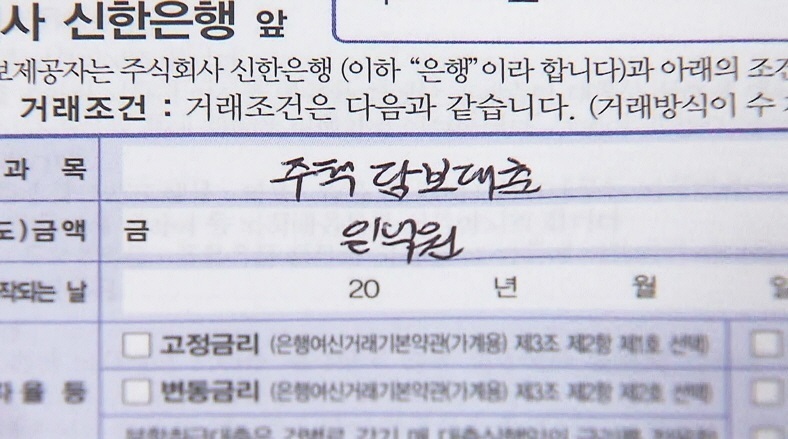 사 신한은행 앞
보제공자는 주식회사 신한은행 (이하 “은행”이라 합니다)과 아래의 조건
거래조건 : 거래조건은 다음과 같습니다. (거래방식이 수
과 목 주택 담보대출
도)금액 금 일억원
작되는 날 20 년 월 일
고정금리 (은행여신거래기본약관(가계용) 제3조 제2항 제1호 선택)
율 등 변동금리 (은행여신거래기본약관(가계용) 제3조 제2항 제2호 선택)